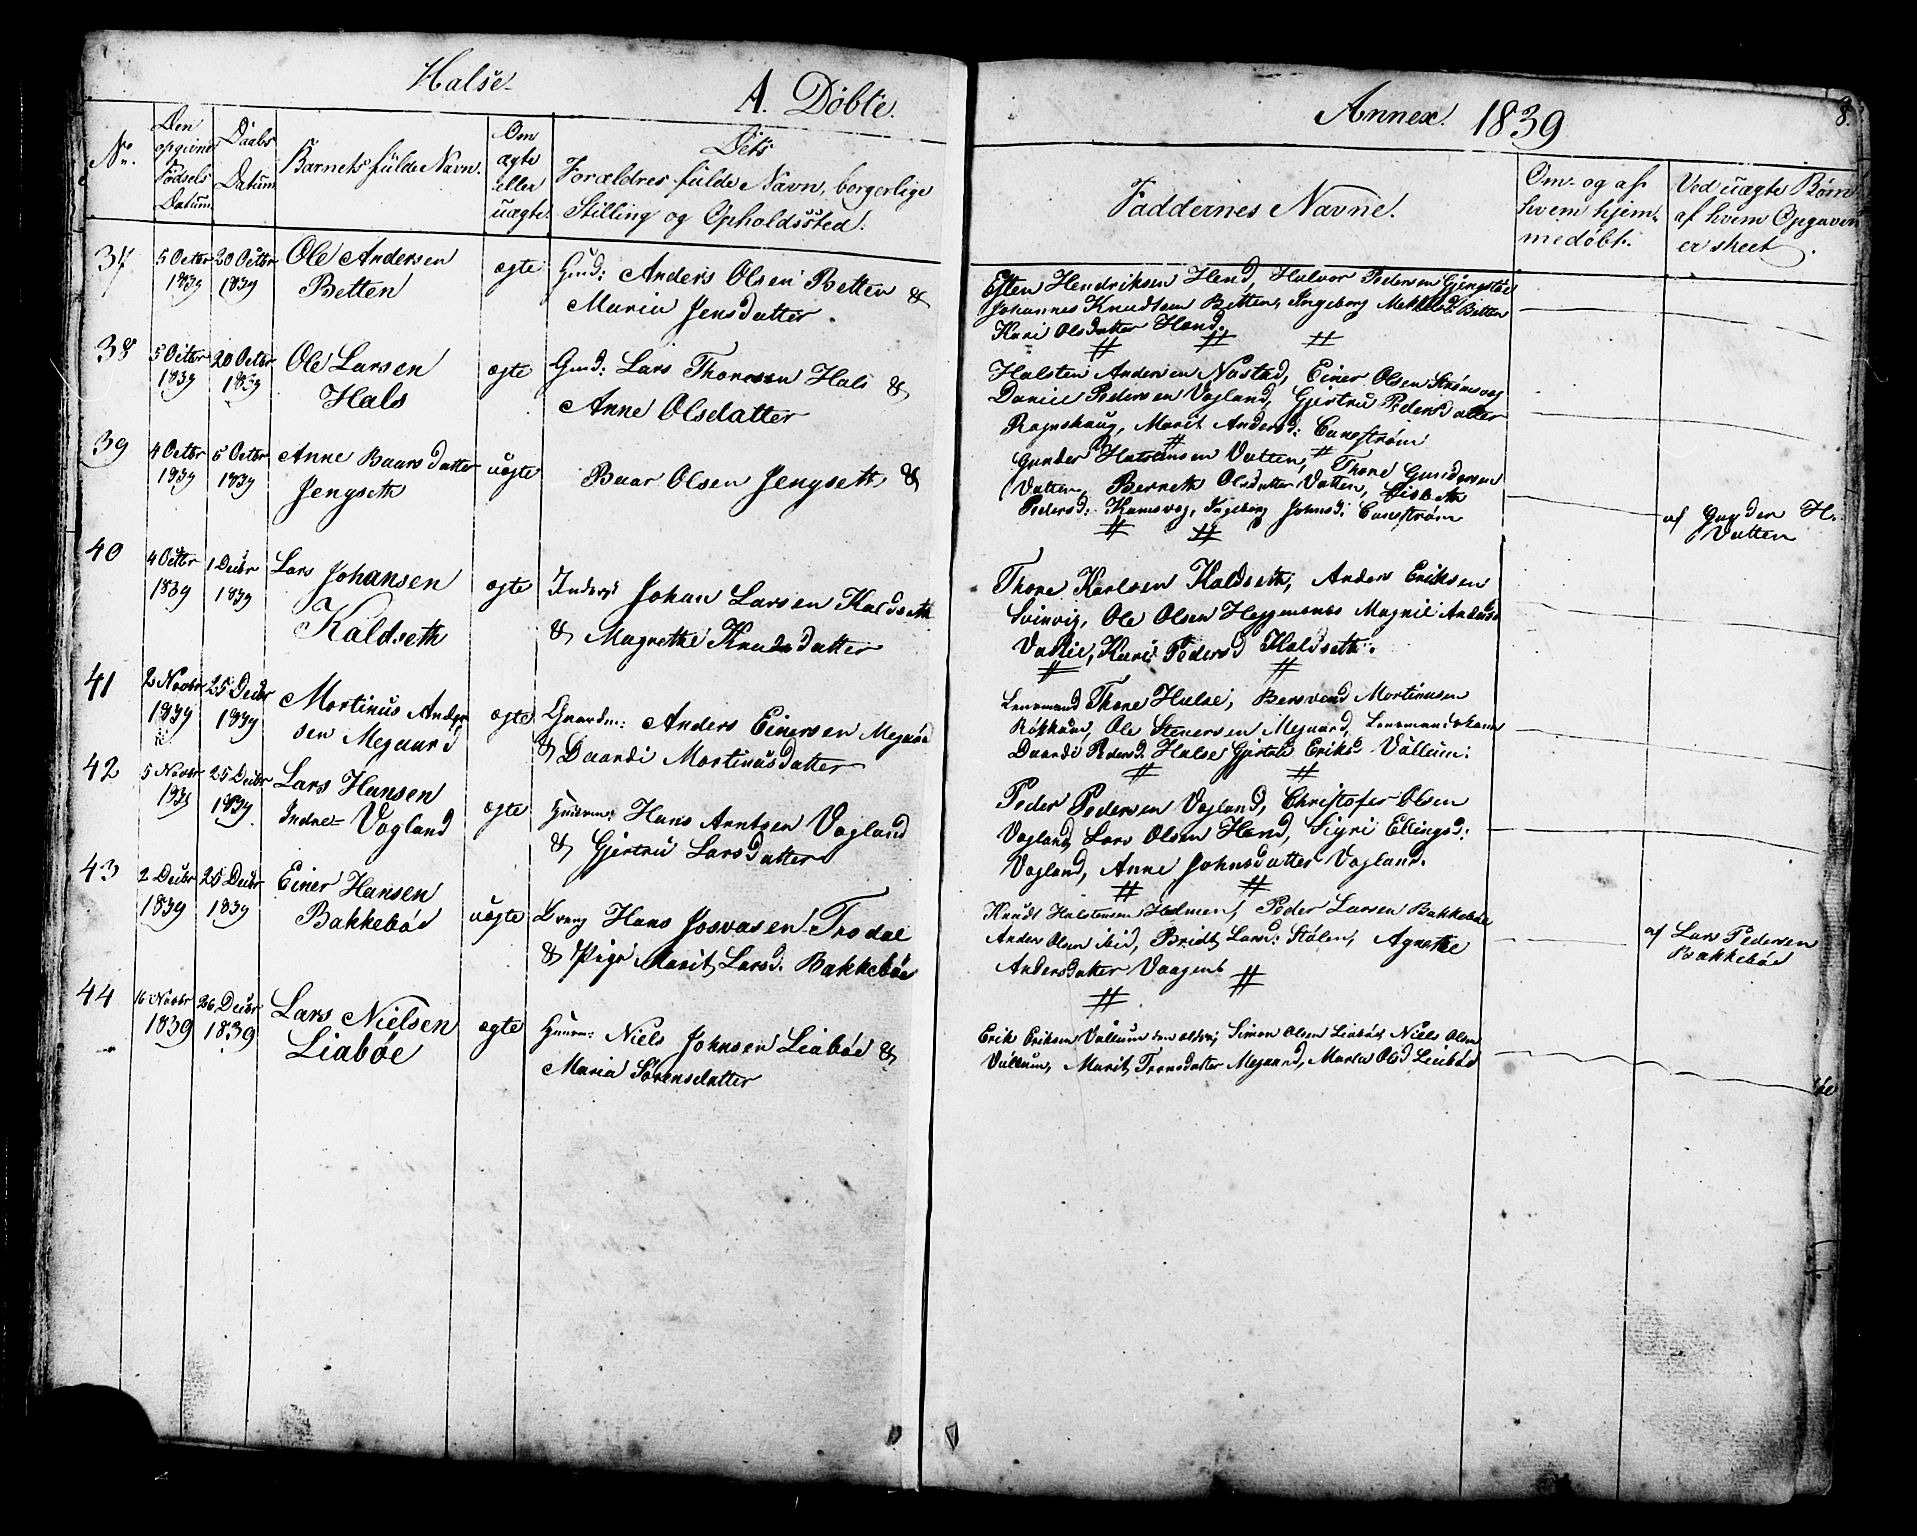 Halse
A. Döbte.
Annex. 1839
8.
No.
Den opgivne Födsels Datum.
Daabs Datum
Barnets fulde Navn.
Om ægte eller uægte.
Dets
Forældres fulde Navn, borgerlige
Stilling og Opholdssted.
Faddernes Navne.
Om- og af hvem hjemmedøbt.
Ved uægte Børn af hvem Opgaven er skeet.
37
5 Octbr 1839
20 Octbr 1839
Ole Andersen
Betten
ægte
Gmd: Anders Olsen Betten &
Maria Jensdatter.
Esten Hendriksen Hend, Halvor Pedersen
Johannes Knudtsen Betten, Ingeborg Betten
Kari Olsdatter Hend.
38
5 Octbr 1839
20 Octbr 1839
Ole Larsen
Hals
ægte
Gmd: Lars Thoresen Hals &
Anne Olsdatter
Halsten Andersen Nastad, Einer Olsen
Daniel Pedersen Vogland, Gjertru Pedersdatter
Rognskaug, Marit Andersd:
39
4 Octbr 1839
5 Octbr 1839
Anne Baarsdatter
Jengseth
uægte
Baar Olsen Jengseth &
Gunder Halstensen Vatten, Thore Gundersen
Vatten, Berneth Olsdatter Vatten, Lisbeth
Pedersd: Kamsvog, Ingeborg Johnsd:
af Gunder H.
Vatten
40
4 Octbr 1839
1 Decbr 1839
Lars Johansen
Kaldseth
ægte
Inders: Johan Larsen Kaldseth
& Magrethe Knudsdatter
Thore Karlsen Kaldseth, Anders Eriksen
Svinvig, Ole Olsen Magnil Andersd
Kari Pedersd Kaldseth.
41
2 Novbr 1839
25 Decbr 1839
Mortinus Andersen
Megaard
ægte
Gaardm: Anders Einersen Megaard
& Daardi Mortinusdatter
Lensmand Thore Halse, Bersvend Mortinusen
Røkkum, Ole Stenersen Megaard, Lensmandskone
Daardi Pedersd. Halse Gjertru Eriksd Vullum:
42
5 Novbr 1839
25 Decbr 1839
Lars Hansen
Indre Vogland
ægte
Huusm: Hans Arntsen Vogland
& Gjertru Larsdatter
Peder Pedersen Vogland, Christofer Olsen
Vogland, Lars Olsen Hend, Sigri Ellingsd:
Vogland, Anne Johnsdatter Vogland.
43
2 Decbr 1839
25 Decbr 1839
Einer Hansen
Bakkebøe
uægte
Dreng Hans Josvasen Trodal
& Pige Marit Larsd. Bakkebøe
Knudt Halstensen Holmen, Peder Larsen Bakkebøe
Anders Olsen ibid, Bridt Larsd: Stølen, Agnethe
Andersdatter Vaagen
af Lars Pedersen
Bakkebøe
44
16 Novbr 1839
26 Decbr 1839
Lars Nielsen
Liabøe
ægte
Huusm: Niels Johnsen Liabøe &
Maria Sørensdatter
Erik Eriksen Vullum den eldre, Simon Olsen Liabøe, Niels Olsen
Vullum, Marit Tronsdatter Megaard, Marta Olsd Liabøe